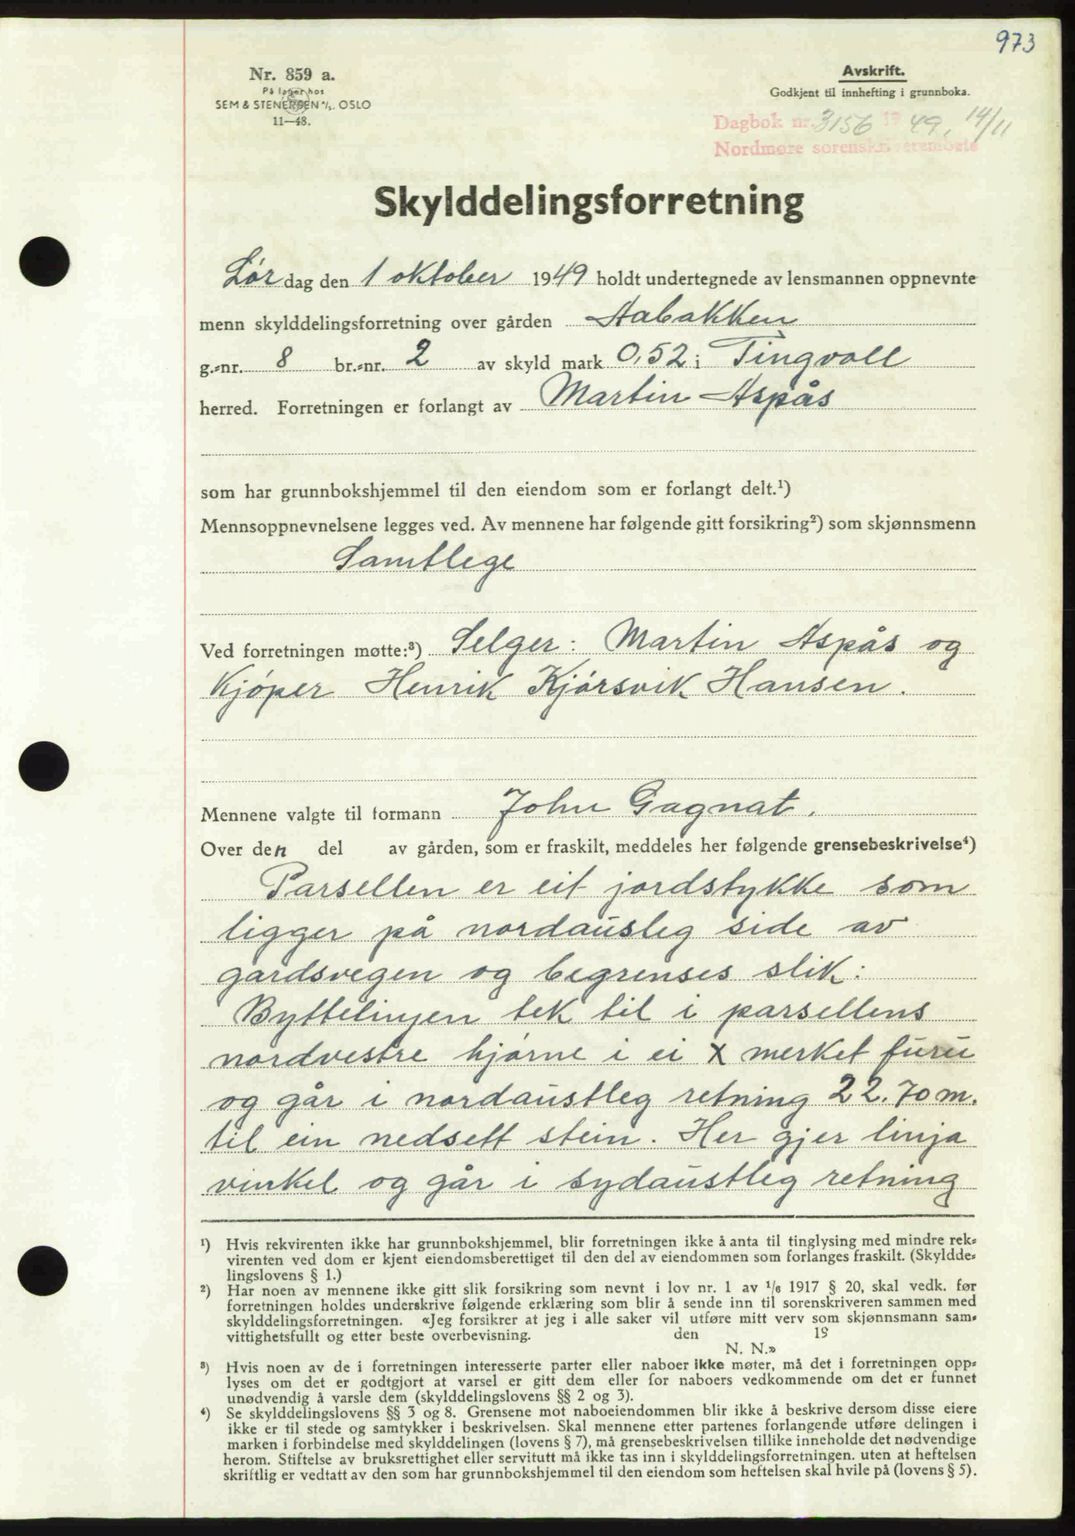 973
Nr. 859 a.
På lager hos
SEM & STENERSEN A/S. OSLO
11—48.
Avskrift.
Godkjent til innhefting i grunnboka.
Dagbok nr. 3156 19 49, 14/11
Nordmøre sorenskriverembete
Skylddelingsforretning
Lør dag den 1 oktober 1949 holdt undertegnede av lensmannen oppnevnte
menn skylddelingsforretning over gården Aabakken
g.-nr. 8 br.-nr. 2 av skyld mark 0,52 i Tingvoll
herred. Forretningen er forlangt av Martin Aspås
som har grunnbokshjemmel til den eiendom som er forlangt delt.¹)
Mennsoppnevnelsene legges ved. Av mennene har følgende gitt forsikring²) som skjønnsmenn
Samtlege
Ved forretningen møtte:³) Selger: Martin Aspås og
Kjøper Henrik Kjørsvik Hansen.
Mennene valgte til formann John Gagnat.
Over den del av gården, som er fraskilt, meddeles her følgende grensebeskrivelse⁴)
Parsellen er eit jordstykke som
ligger på nordausleg side av
gardsvegen og begrenses slik:
Byttelinjen tek til i parsellens
nordvestre hjørne i ei X merket furu
og går i nordaustleg retning 22.70 m.
til ein nedsett stein. Her gjer linja
vinkel og går i sydaustleg retning
¹) Hvis rekvirenten ikke har grunnbokshjemmel, blir forretningen ikke å anta til tinglysing med mindre rek-
virenten ved dom er kjent eiendomsberettiget til den del av eiendommen som forlanges fraskilt. (Skyldde-
lingslovens § 1.)
²) Har noen av mennene ikke gitt slik forsikring som nevnt i lov nr. 1 av 1/6 1917 § 20, skal vedk. før
forretningen holdes underskrive følgende erklæring som blir å sende inn til sorenskriveren sammen med
skylddelingsforretningen. «Jeg forsikrer at jeg i alle saker vil utføre mitt verv som skjønnsmann sam-
vittighetsfullt og etter beste overbevisning. den 19
N. N.»
³) Hvis noen av de i forretningen interesserte parter eller naboer ikke møter, må det i forretningen opp-
lyses om det er godtgjort at varsel er gitt dem eller for naboers vedkommende om det er funnet
unødvendig å varsle dem (skylddelingslovens §§ 2 og 3).
⁴) Se skylddelingslovens §§ 3 og 8. Grensene mot naboeiendommen blir ikke å beskrive dersom disse eiere
ikke er til stede og samtykker i beskrivelsen. Skal mennene etter partenes forlangende utføre delingen i
marken i forbindelse med skylddelingen (lovens § 7), må grensebeskrivelsen tillike inneholde det nødvendige
herom. Stiftelse av bruksrettighet eller servitutt må ikke tas inn i skylddelingsforretningen. uten at heftelsen
skriftlig er vedtatt av den som har grunnbokshjemmel til den eiendom som heftelsen skal hvile på (lovens § 5).